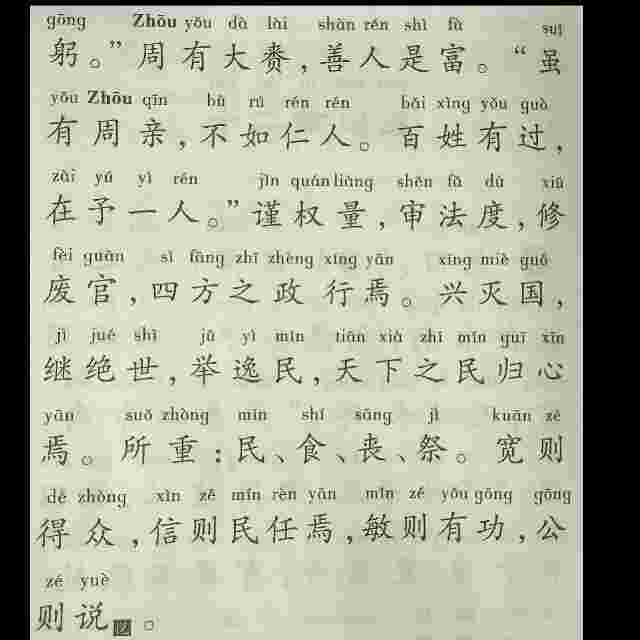 gōng Zhōu yǒu dà lài shàn rén shì fù suī
躬。”周有大赉,善人是富。“虽
yǒu Zhōu qīn bù rú rén rén bǎi xìng yǒu guò
有周亲,不如仁人。百姓有过,
zài yú yì rén jǐn quán liàng shěn fǎ dù xiū
在予一人。”谨权量,审法度,修
fèi guān sì fāng zhī zhèng xíng yān xīng miè guó
废官,四方之政行焉。兴灭国,
jì jué shì jǔ yì mín tiān xià zhī mín guī xīn
继绝世,举逸民,天下之民归心
yān suǒ zhòng mín shí sāng jì kuān zé
焉。所重:民、食、丧、祭。宽则
dé zhòng xìn zé mín rèn yān mǐn zé yǒu gōng gōng
得众,信则民任焉,敏则有功,公
zé yuè
则说。